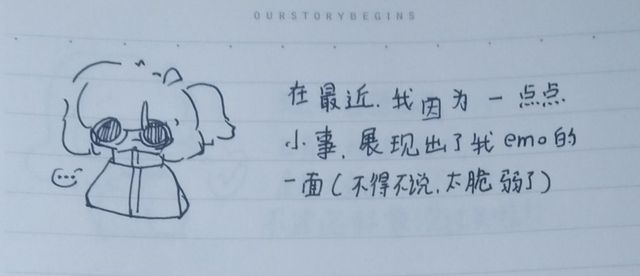 OURSTORYBEGINS
在最近,我因为一点点
小事,展现出了我emo的
一面(不得不说,太脆弱了)